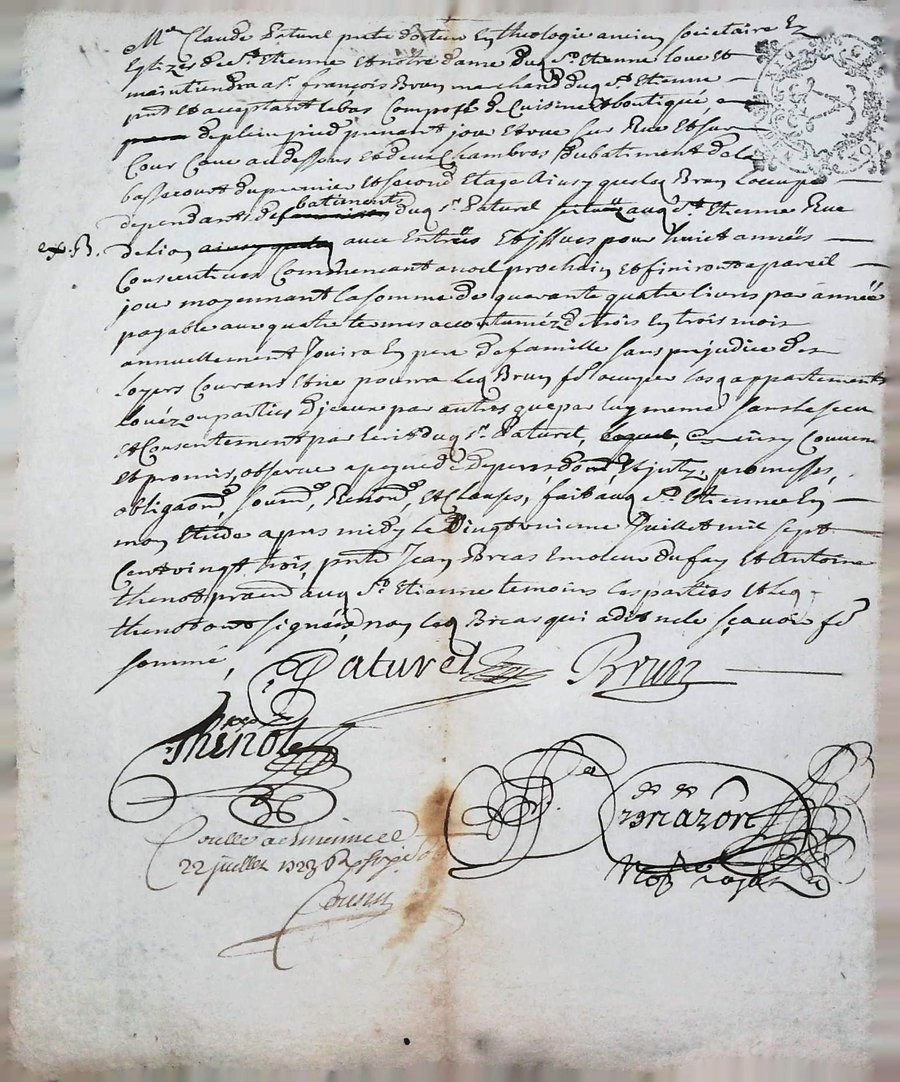 Mre Claude Paturel pretre docteur en theologie ancien societaire Es
Eglizes de St Etienne et notre dame dud St Etienne loue et
maintiendra a Sr françois Brun marchand dud St Etienne
pnt et acceptant le bas Composé de Cuisine et boutique
de plein pied prenant jour et vue sur Rue et sur
Cour Cave au dessous et deux Chambres du batiment de la
bassecourt du premier et second Etage Ainsy que led Brun l'occupe
dependants des batiments dud Sr Paturel scitués aud St Etienne Rue
de lion avec Entrées et issues pour huict années
Consecutives Commencant a noel prochain et finiront a pareil
jour moyennant la somme de quarante quatre livres par année
payable aux quatre termes accoutumez de trois en trois mois
annuellement Jouira En pere de famille sans prejudice des
loyers Courans et ne pourra led Brun fe ocuper lesd appartements
louéz ou parties d'jceux par autres que par luy meme sans le sceu
et Consentement par Ecrit dud Sr Paturel, Ainsy Convenu
et promis, observer a peyne de depens, dom, et jnt, promesses,
obligaons, soum, Renon, et Clauses, fait aud St Etienne En
mon Etude apres midy le vingt unieme Juillet mil sept
Cent vingt trois, pnts Jean Breas Emoleur du fay et Antoine
thenot praen aud St Etienne temoins les parties et led
thenot ont signé, non led Breas qui a dit ne le sçavoir fe
sommé,
Paturel Brun
Thenot
Nore Royal
22 juillet 1723
Cousin